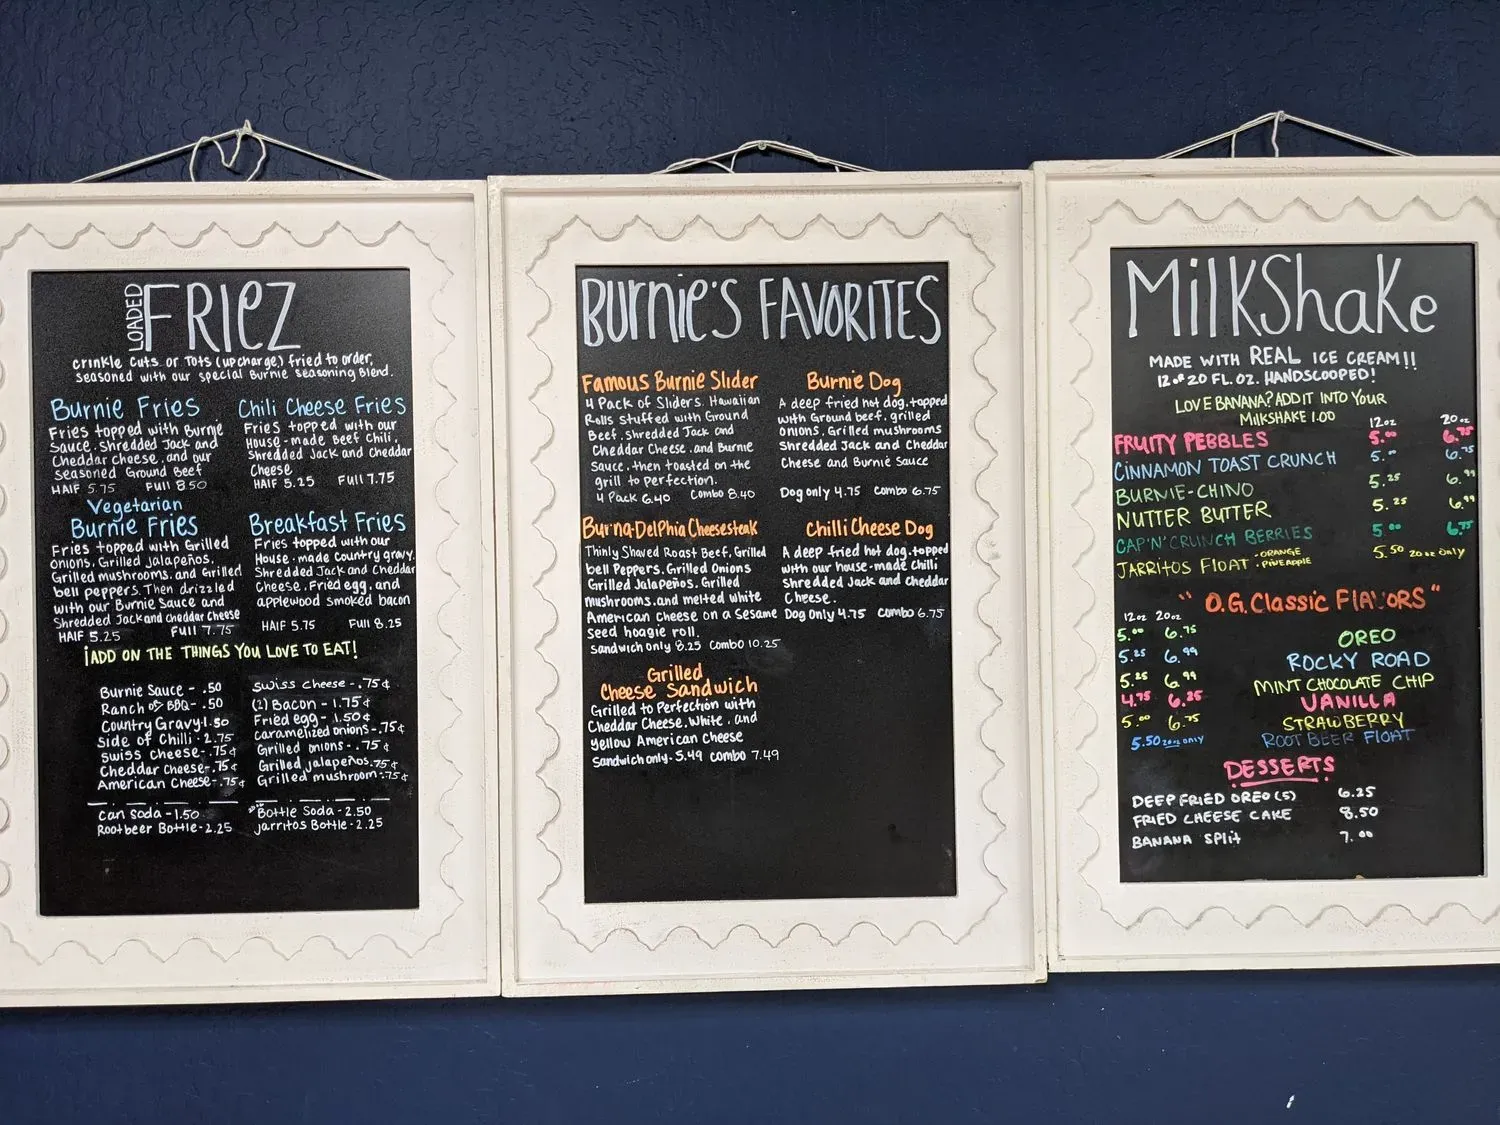 LOADED FRIEZ
crinkle cuts or Tots (upcharge) fried to order,
seasoned with our special Burnie Seasoning Blend.
Burnie Fries
Fries topped with Burnie
Sauce, Shredded Jack and
Cheddar cheese, and our
seasoned Ground Beef
HAlF 5.75 Full 8.50
Chili Cheese Fries
Fries topped with our
House-made Beef Chili,
Shredded Jack and Cheddar
Cheese
HAlF 5.25 Full 7.75
Vegetarian
Burnie Fries
Fries topped with Grilled
onions, Grilled Jalapeños,
Grilled mushrooms, and Grilled
bell peppers. Then drizzled
with our Burnie Sauce and
Shredded Jack and cheddar Cheese
HAlF 5.25 Full 7.75
Breakfast Fries
Fries topped with our
House-made country gravy.
Shredded Jack and Cheddar
Cheese, Fried egg, and
applewood smoked bacon
HAlF 5.75 Full 8.25
¡ADD ON THE THINGS YOU LOVE TO EAT!
Burnie Sauce - .50
Ranch or BBQ - .50
Country Gravy-1.50
side of Chilli - 2.75
swiss cheese-.75¢
Cheddar Cheese-.75¢
American Cheese-.75¢
swiss cheese-.75¢
(2) Bacon - 1.75¢
Fried egg - 1.50¢
caramelized onions-.75¢
Grilled onions-.75¢
Grilled jalapeños.75¢
Grilled mushroom-.75¢
can soda - 1.50
Rootbeer Bottle-2.25
Bottle Soda - 2.50
Jarritos Bottle-2.25
Burnie's FAVORITES
Famous Burnie Slider
4 Pack of Sliders. Hawaiian
Rolls stuffed with Ground
Beef, Shredded Jack and
Cheddar Cheese, and Burnie
Sauce, then toasted on the
grill to Perfection.
4 Pack 6.40 Combo 8.40
Burnie Dog
A deep fried hot dog, topped
with Ground beef, grilled
onions, Grilled mushrooms
Shredded Jack and Cheddar
Cheese and Burnie Sauce
Dog only 4.75 Combo 6.75
Burna-DelPhia Cheesesteak
Thinly Shaved Roast Beef, Grilled
bell Peppers, Grilled Onions
Grilled Jalapeños, Grilled
mushrooms, and melted white
American Cheese on a Sesame
Seed hoagie roll.
Sandwich only 8.25 Combo 10.25
Chilli Cheese Dog
A deep fried hot dog, topped
with our house-made Chilli
Shredded Jack and cheddar
Cheese.
Dog only 4.75 Combo 6.75
Grilled
Cheese Sandwich
Grilled to Perfection with
Cheddar Cheese, White, and
yellow American Cheese
Sandwich only-5.49 combo 7.49
MilkShake
MADE WITH REAL ICE CREAM!!
12 or 20 FL.OZ. HANDSCOOPED!
LOVE BANANA? ADD IT INTO YOUR
MilkSHAKE 1.00
12oz 20oz
FRUITY PEBBLES 5.00 6.75
CINNAMON TOAST CRUNCH 5.00 6.75
BURNIE-CHINO 5.25 6.99
NUTTER BUTTER 5.25 6.99
CAP'N'CRUNCH BERRIES 5.00 6.75
JARRITOS FLOAT ·ORANGE ·PINEAPPLE 5.50 20oz only
"O.G.Classic FlAVORS"
12oz 20oz
5.00 6.75 OREO
5.25 6.99 ROCKY ROAD
5.25 6.99 MINT CHOCOLATE CHIP
4.75 6.25 VANILLA
5.00 6.75 STRAWBERRY
5.50 20oz only ROOT BEER FLOAT
DESSERTS
DEEP FRIED OREO (5) 6.25
FRIED CHEESE CAKE 8.50
BANANA SPlit 7.00